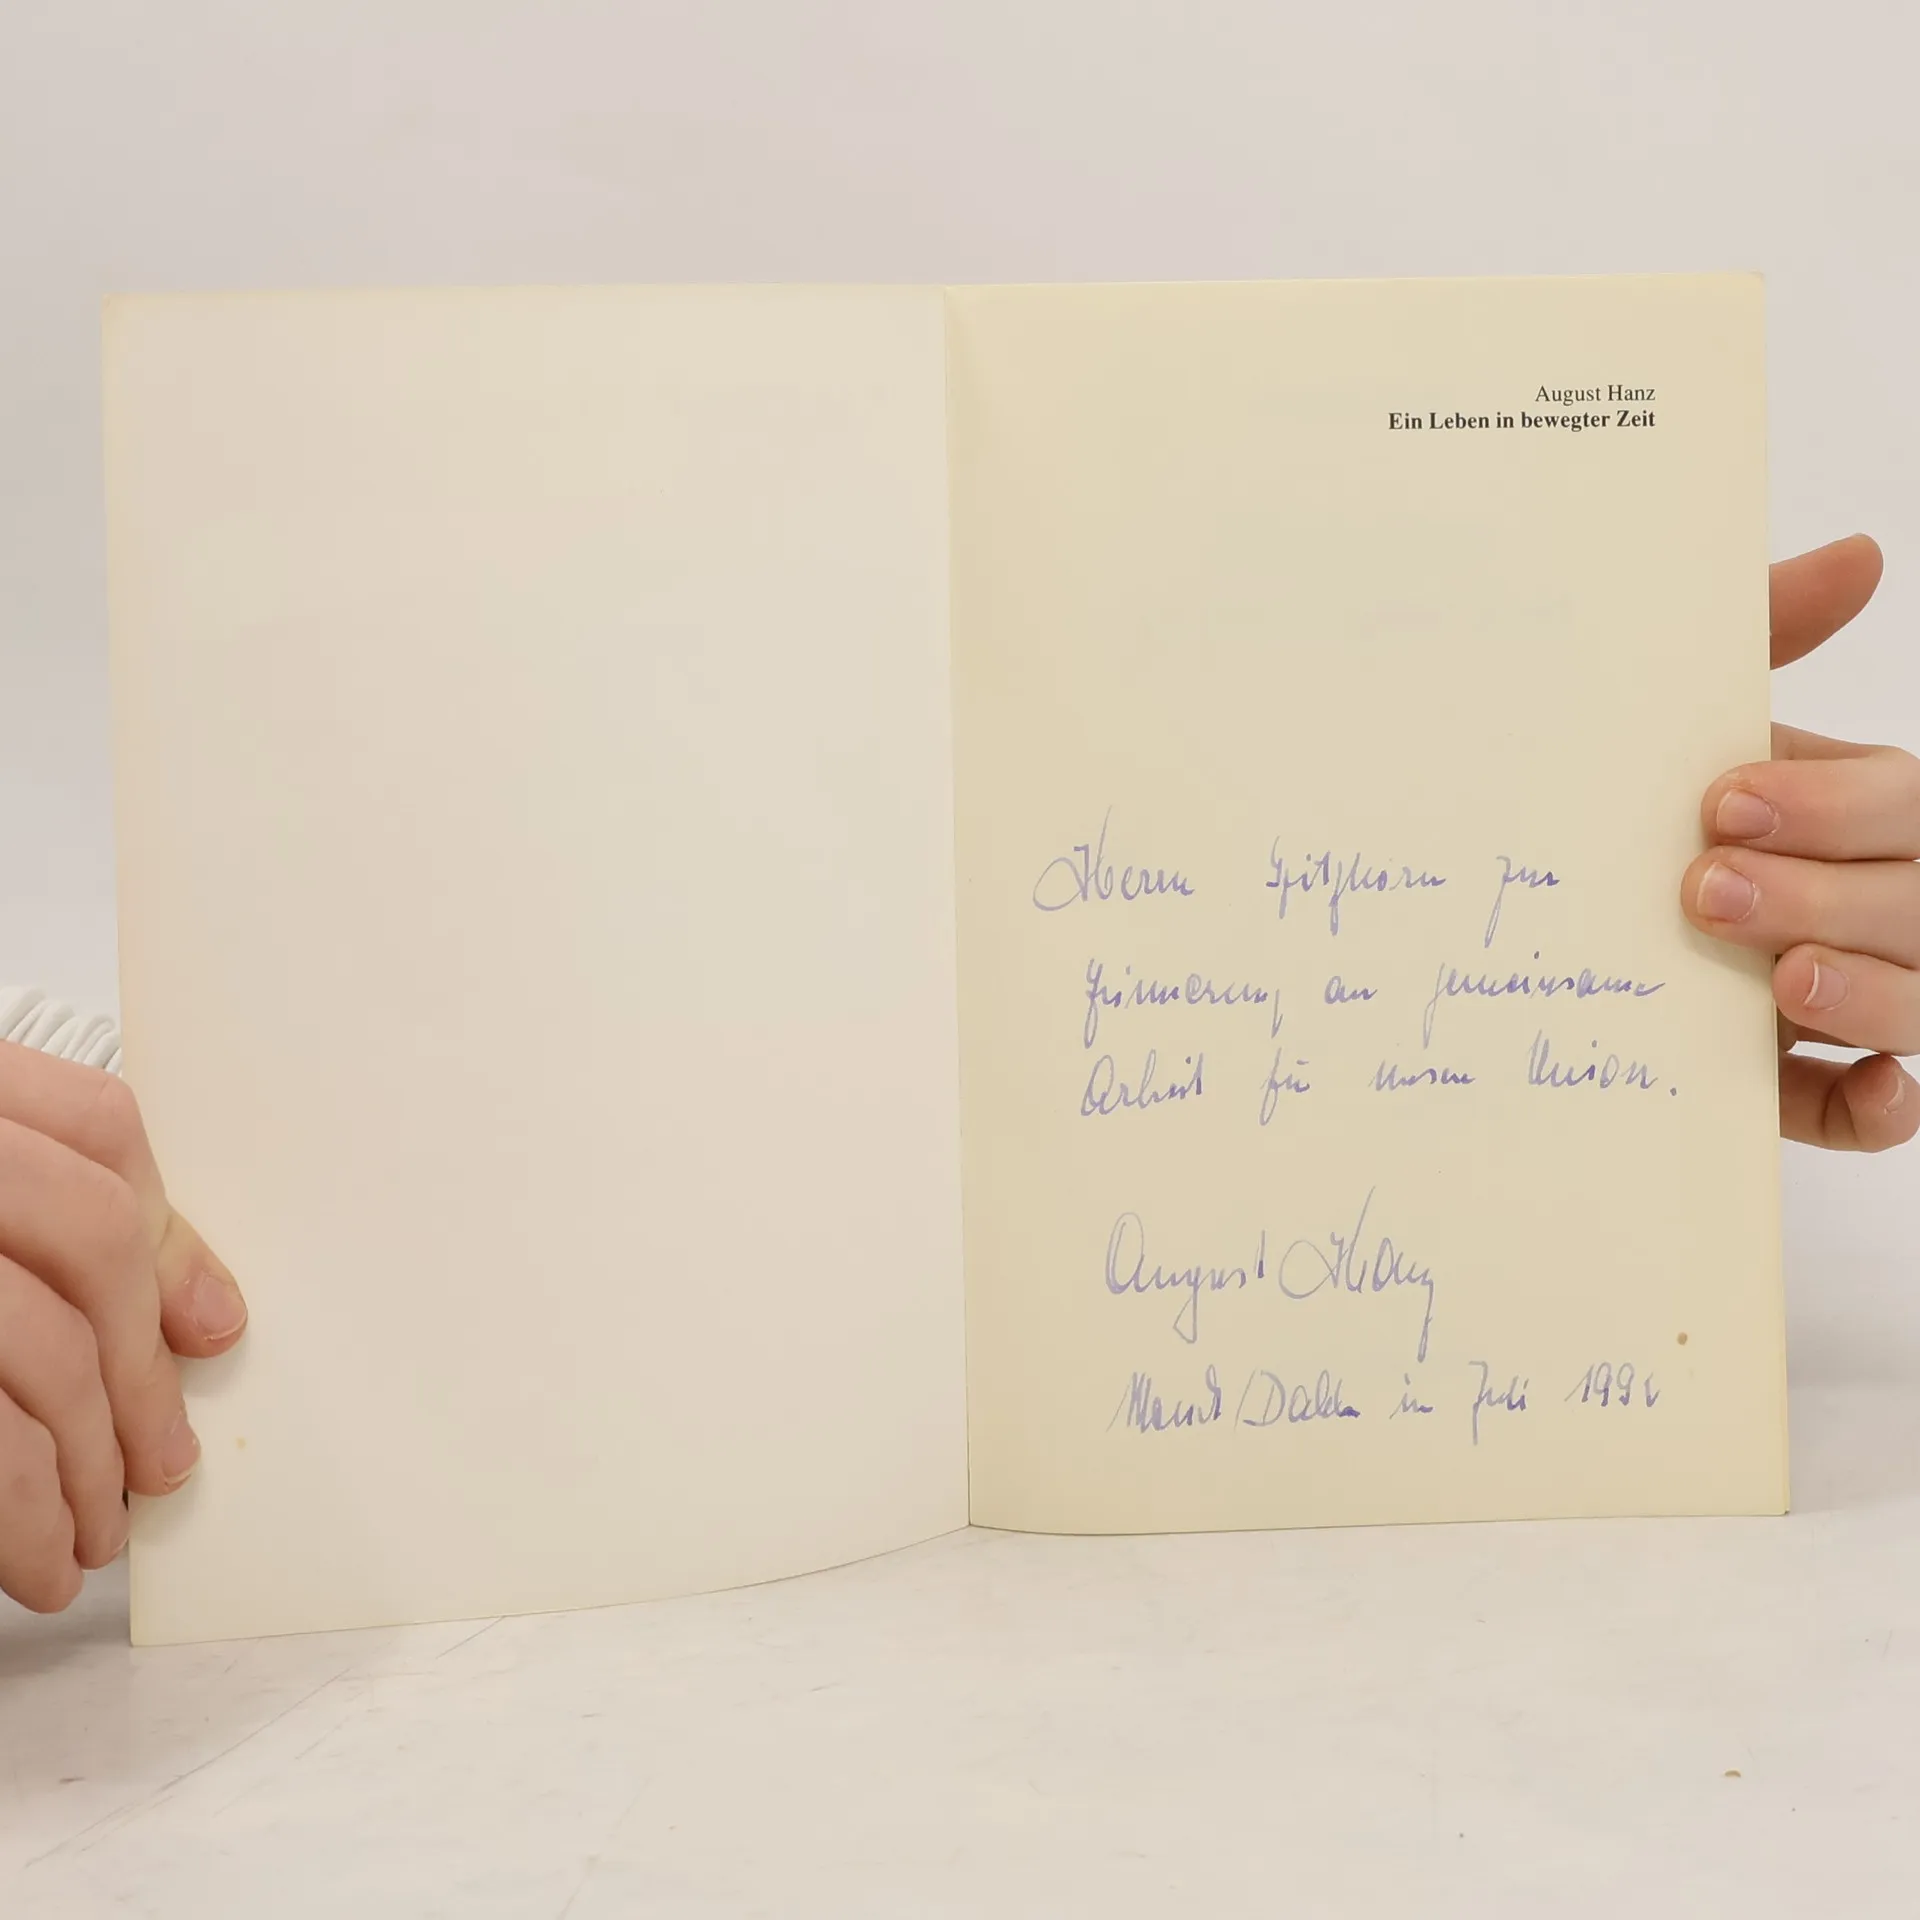 August Hanz
Ein Leben in bewegter Zeit
Herrn Spitzhorn zur
Erinnerung an gemeinsame
Arbeit für unsere Union.
August Hanz
im Juli 199